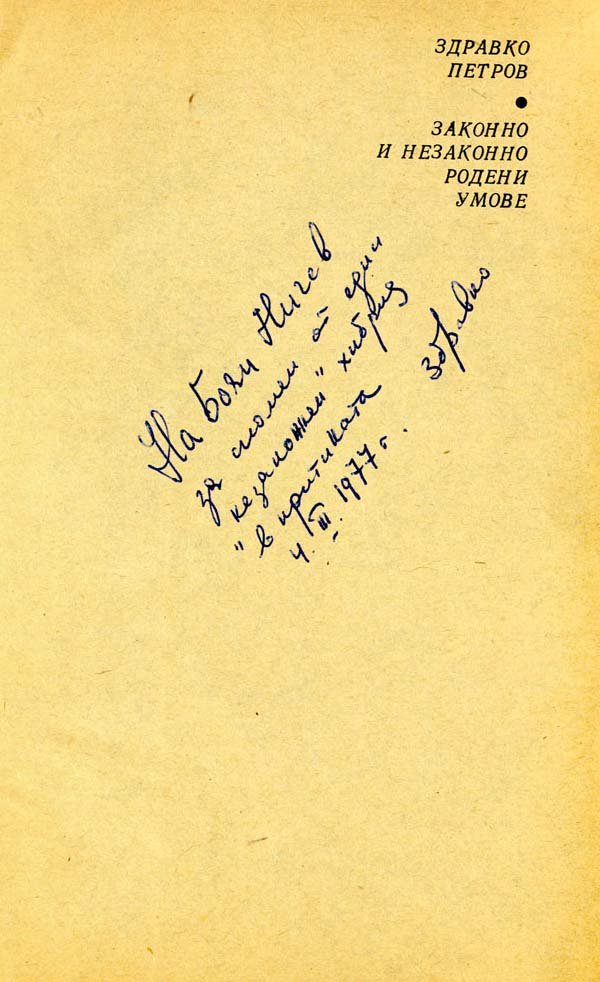 ЗДРАВКО
ПЕТРОВ
•
ЗАКОННО
И НЕЗАКОННО
РОДЕНИ
УМОВЕ
На Боян Ничев
за спомен от един
"незаконен" хибрид
в критиката
4. III. 1977 г.
Здравко